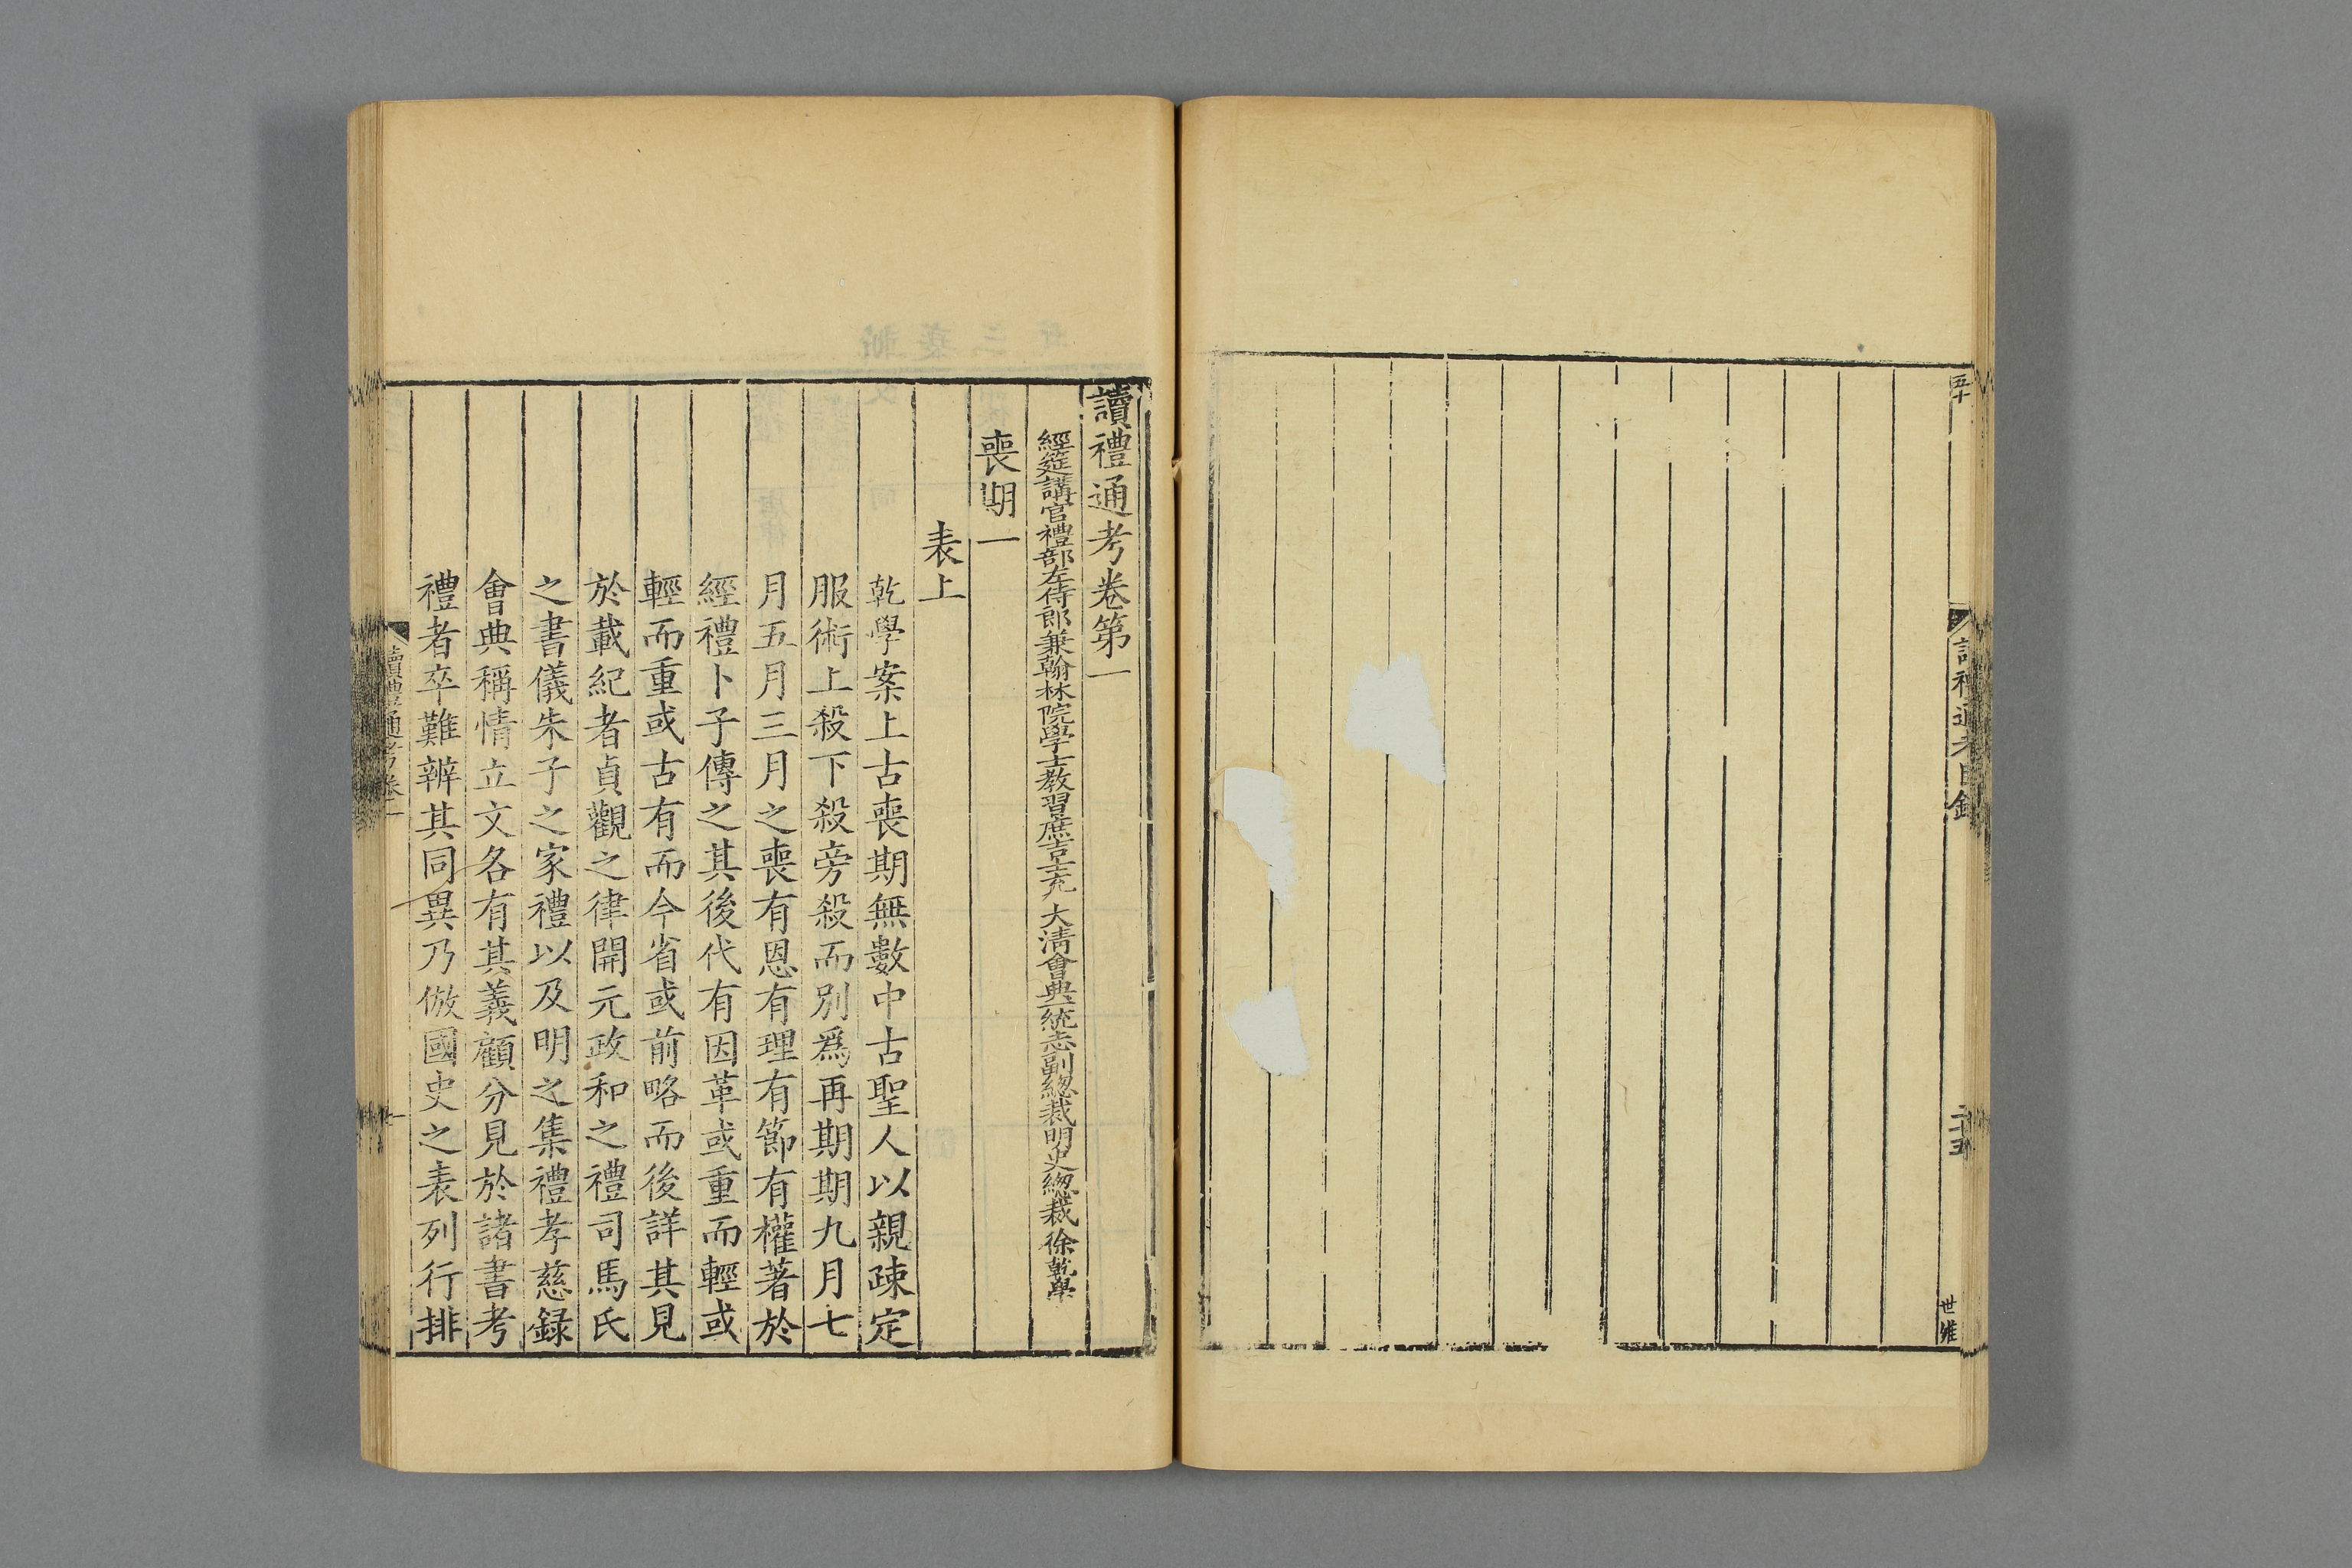 五十
讀禮通考目錄
二十五
世維
讀禮通考卷第一
經筵講官禮部左侍郎兼翰林院學士教習庶吉士充 大清會典一統志副總裁明史總裁徐乾學
喪期一
表上
乾學案上古喪期無數中古聖人以親疎定
服術上殺下殺旁殺而別爲再期期九月七
月五月三月之喪有恩有理有節有權著於
經禮卜子傳之其後代有因革或重而輕或
輕而重或古有而今省或前略而後詳其見
於載紀者貞觀之律開元政和之禮司馬氏
之書儀朱子之家禮以及明之集禮孝慈録
會典稱情立文各有其義顧分見於諸書考
禮者卒難辨其同異乃倣國史之表列行排
讀禮通考卷一
一